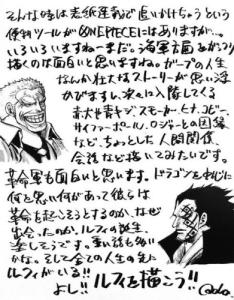 そんな時は表紙連載で追いかけちゃうという
便利ツールがONE PIECEにはありますが、、
いろいろいますねーまだ。海軍方面をがっつり
描くのは面白いと思いますね。ガープの人生
なんか壮大なストーリーが思い浮
かびますし、次に入隊してくる
赤犬や青キジ、スモーカー、ヒナ、コビー、
サイファーポール、ロジャーとの因縁
など、ちょっとした人間関係、
会話など描いてみたいです。
革命軍も面白いと思います。ドラゴンを中心に
何を思い何があって彼らは
革命を起こそうとするのか、なぜ
出会ったのか、ルフィの誕生、
楽しそうです。重い話も多い
かな。そして全ての人生の先に
ルフィがいる!!
よし!!ルフィを描こう!!